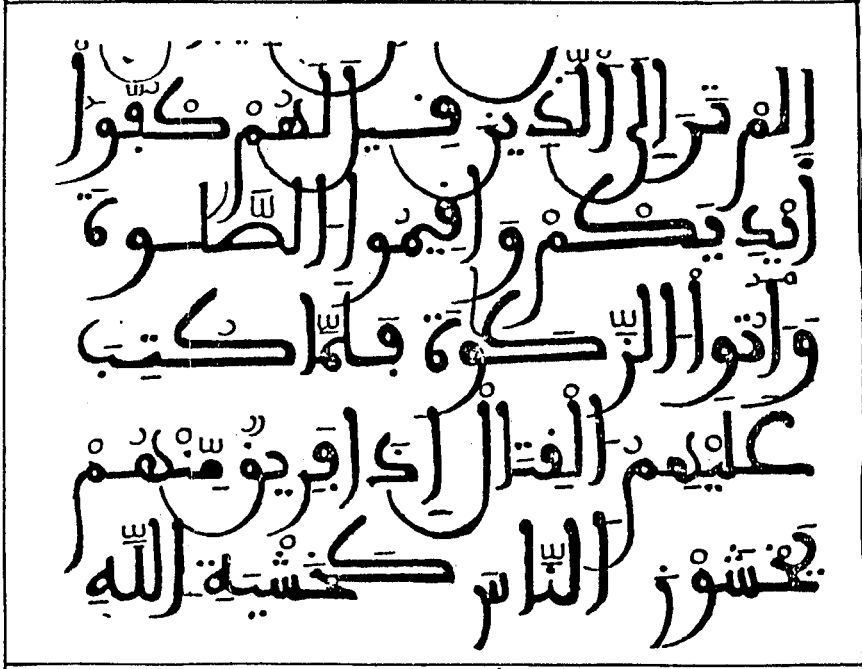 اَلَمْ تَرَ إِلَى اَلذِينَ قِيلَ لَهُمْ كُفُّواْ
أَيْدِيَكُمْ وَأَقِيمُواْ اُلصَّلَوٰةَ
وَءَاتُواْ اُلزَّكَوٰةَ فَلَمَّا كُتِبَ
عَلَيْهِمُ اُلْقِتَالُ إِذَا فَرِيقٌ مِّنْهُمْ
يَخْشَوْنَ اَلنَّاسَ كَخَشْيَةِ اِللَّهِ